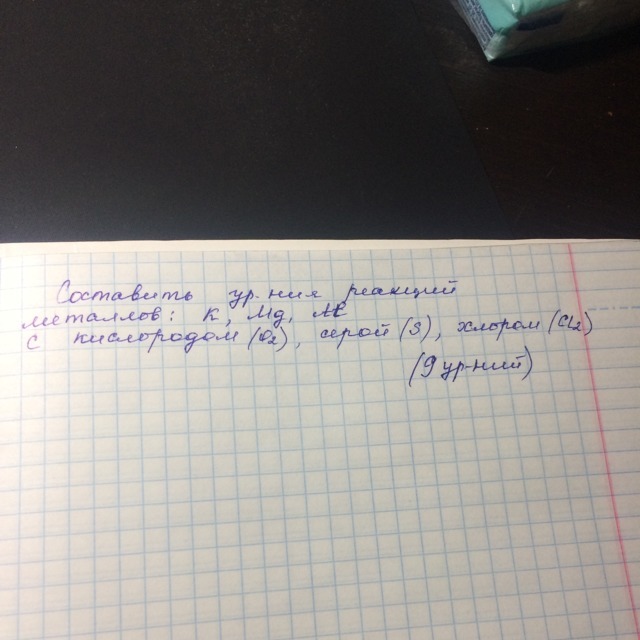 Составить ур-ния реакций
металлов: K, Mg, Al
с кислородом (O₂), серой (S), хлором (Cl₂)
(9 ур-ний)